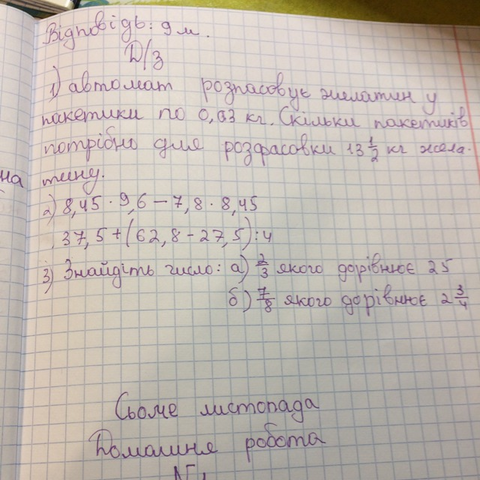 Відповідь: 9 м.
Д/З
1) автомат розпасовує желатин у
пакетики по 0,03 кг. Скільки пакетиків
потрібно для розфасовки 13 1/2 кг жела-
тину.
на
2) 8,45 · 9,6 – 7,8 · 8,45
37,5 + (62,8 – 27,5) : 4
3) Знайдіть число: а) 2/3 якого дорівнює 25
б) 7/8 якого дорівнює 2 3/4
Сьоме листопада
Домашня робота
№1